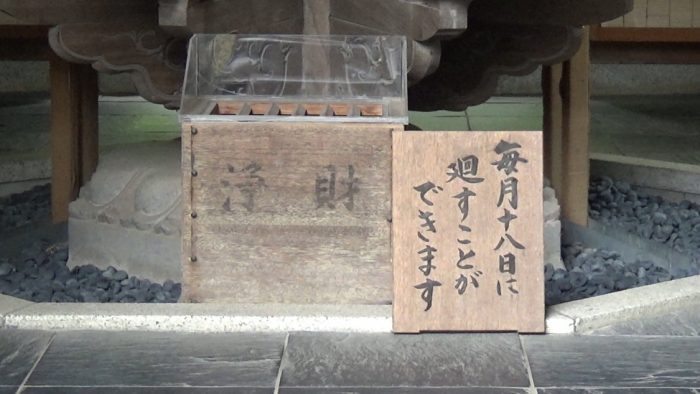 浄財
毎月十八日に
廻すことが
できます